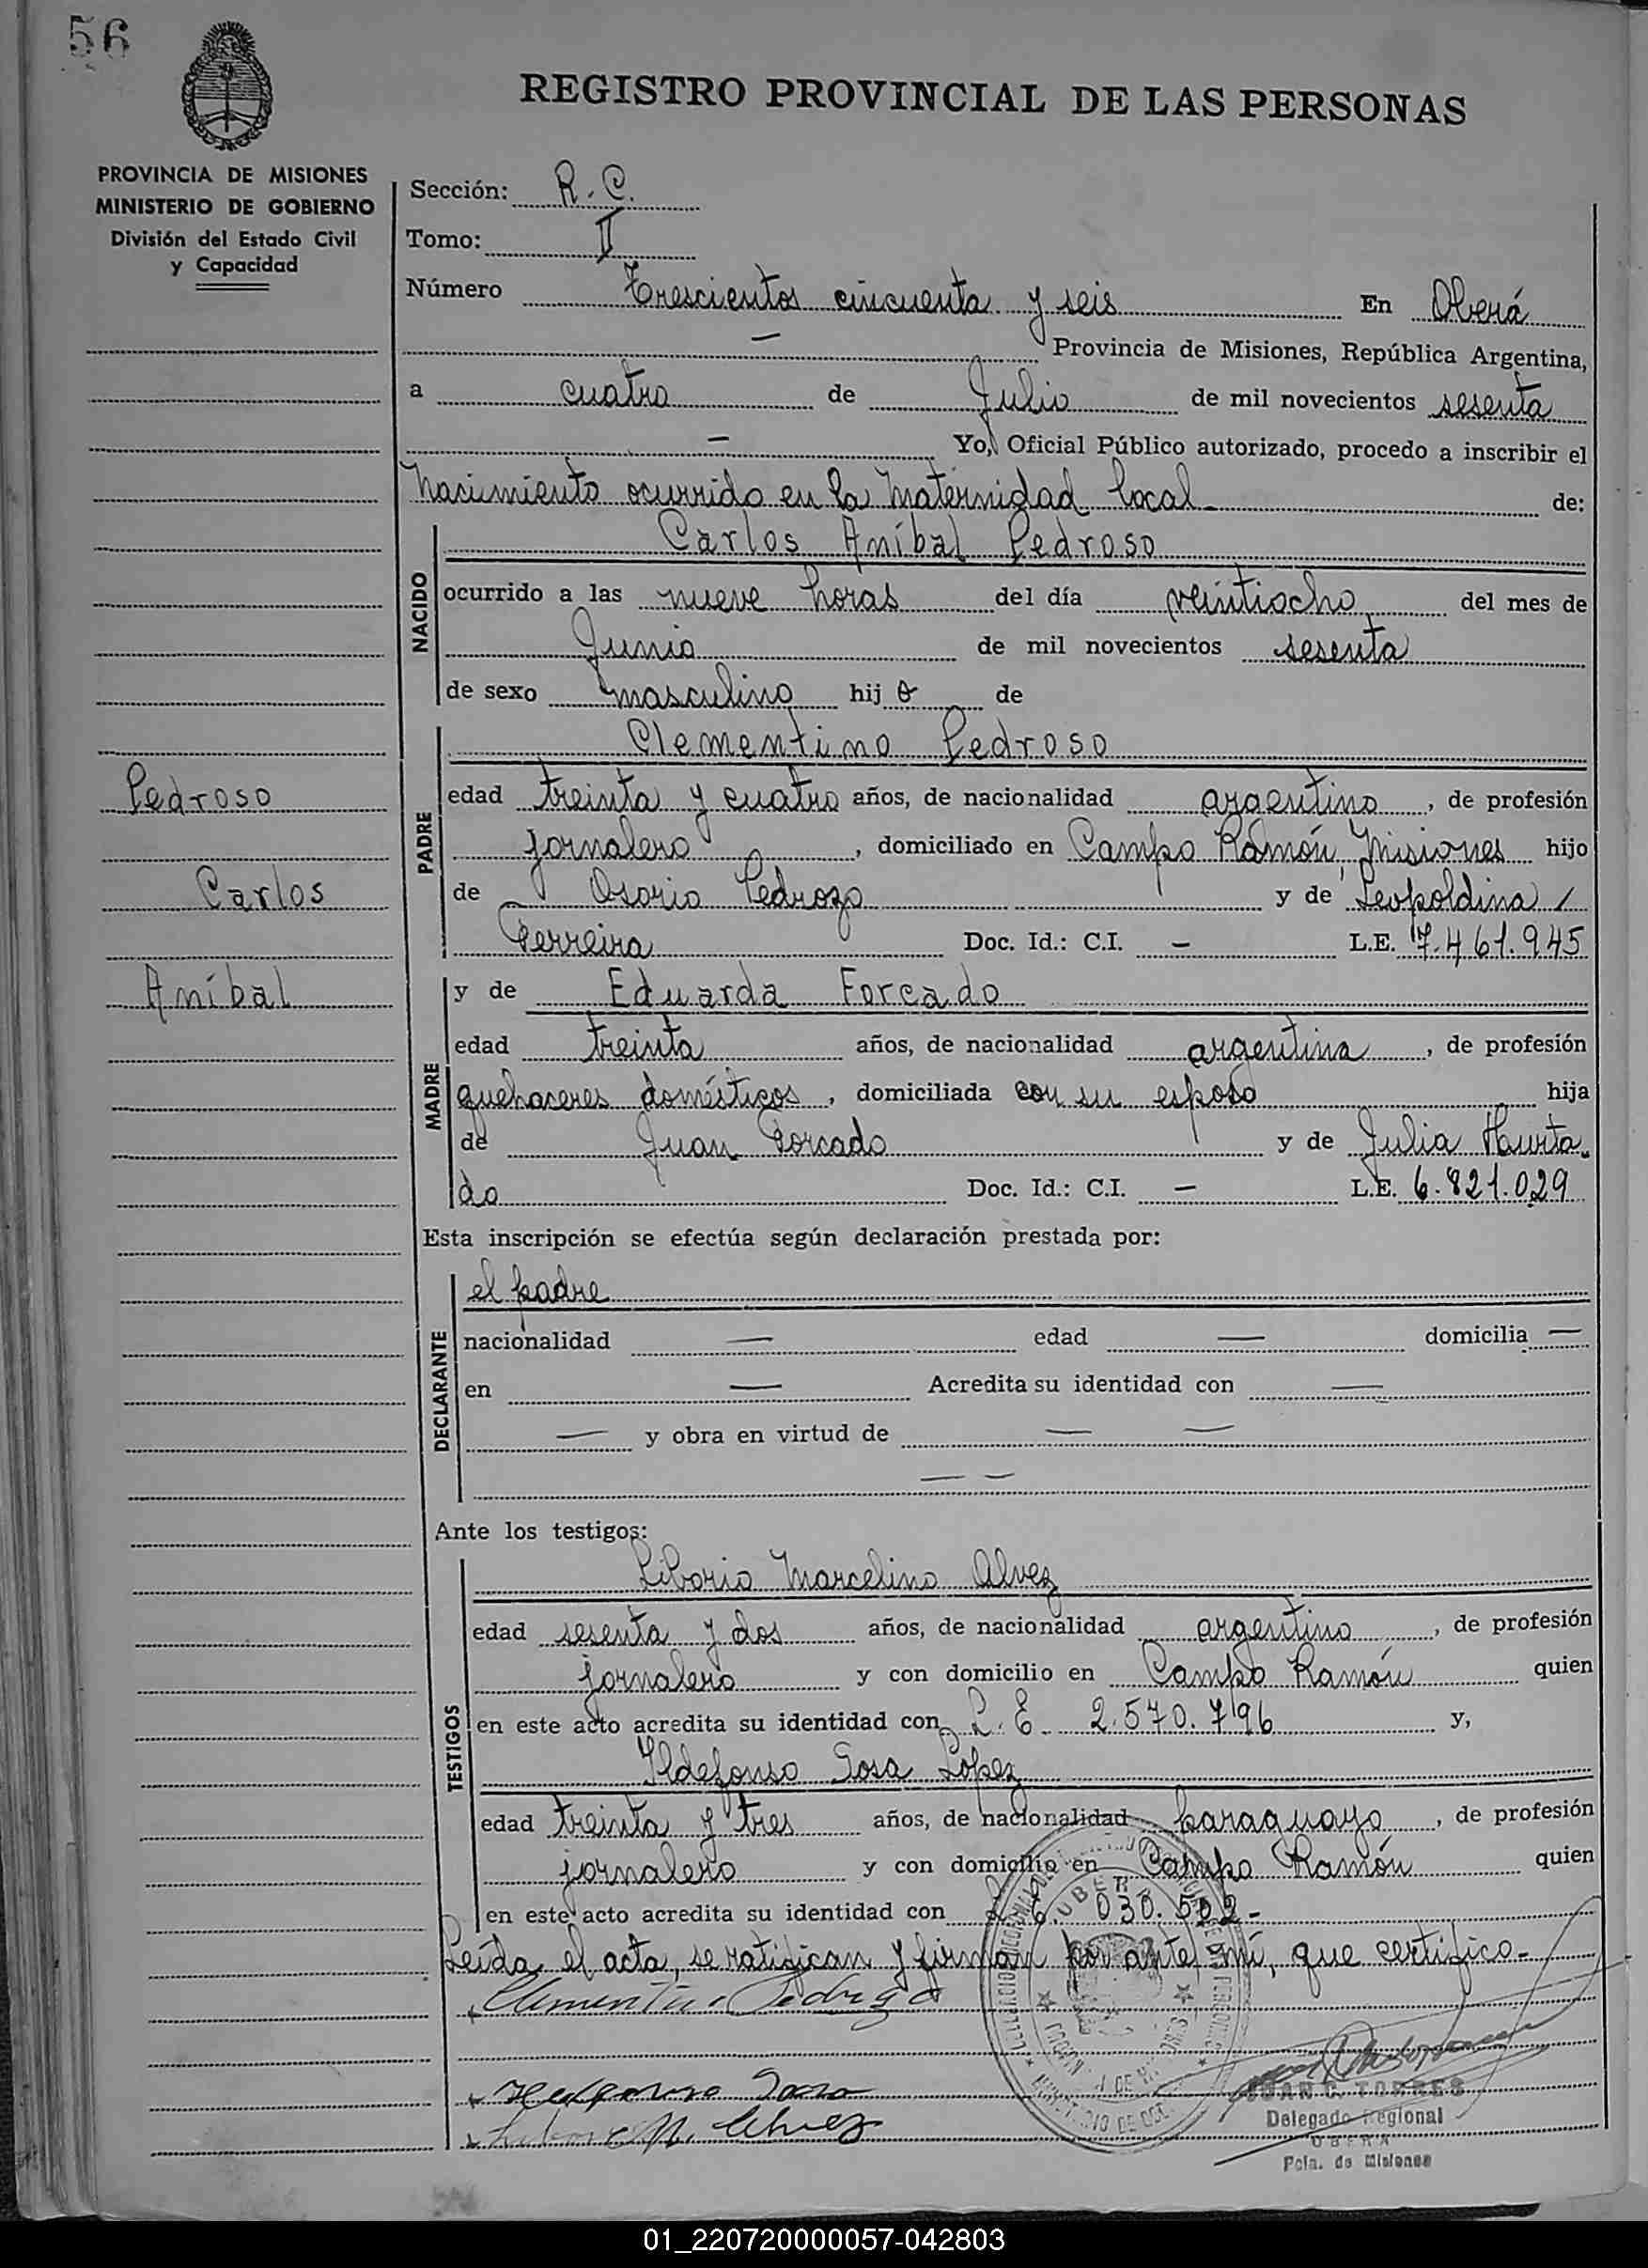 56
REGISTRO PROVINCIAL DE LAS PERSONAS
PROVINCIA DE MISIONES
MINISTERIO DE GOBIERNO
División del Estado Civil
y Capacidad
Sección: R. C.
Tomo: II
Número Trescientos cincuenta y seis En Oberá
— Provincia de Misiones, República Argentina,
a cuatro de Julio de mil novecientos sesenta
— Yo, Oficial Público autorizado, procedo a inscribir el
nacimiento ocurrido en la Maternidad local de:
NACIDO
Carlos Aníbal Pedroso
ocurrido a las nueve horas del día veintiocho del mes de
Junio de mil novecientos sesenta
de sexo masculino hij o de
PADRE
Clementino Pedroso
Pedroso
Carlos
Aníbal
edad treinta y cuatro años, de nacionalidad argentino, de profesión
jornalero, domiciliado en Campo Ramón, Misiones hijo
de Osorio Pedrozo y de Leopoldina /
Ferreira Doc. Id.: C.I. — L.E. 7.461.945
MADRE
y de Eduarda Forcado
edad treinta años, de nacionalidad argentina, de profesión
quehaceres domésticos, domiciliada con su esposo hija
de Juan Forcado y de Julia Hurta
do Doc. Id.: C.I. — L.E. 6.821.029
Esta inscripción se efectúa según declaración prestada por:
DECLARANTE
el padre
nacionalidad — edad — domicilia —
en — Acredita su identidad con —
— y obra en virtud de — —
— —
Ante los testigos:
TESTIGOS
Liborio Marcelino Alvez
edad sesenta y dos años, de nacionalidad argentino, de profesión
jornalero y con domicilio en Campo Ramón quien
en este acto acredita su identidad con L. E. 2.570.796 y,
Ildefonso Sosa López
edad treinta y tres años, de nacionalidad paraguayo, de profesión
jornalero y con domicilio en Campo Ramón quien
en este acto acredita su identidad con 030.502-
Leída el acta, se ratifican y firman por ante mí, que certifico-
JUAN C. TORRES
Delegado Regional
OBERA
Pcia. de Misiones
01_220720000057-042803